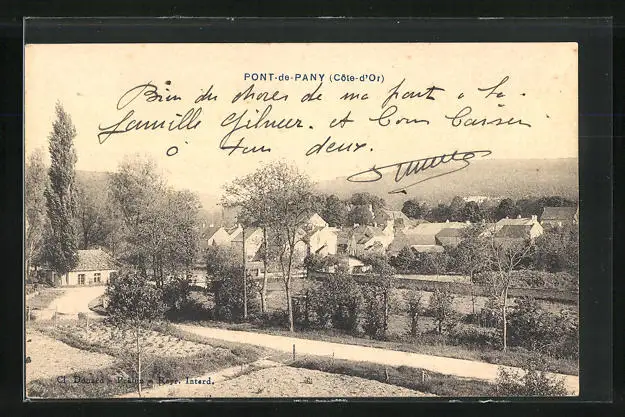 PONT-de-PANY (Côte-d'Or)
Bien du choses de ma part a la
famille Gilmer. et bons baisers
à tous deux.
Cl. Dénard - Prahin - Repr. Interd.